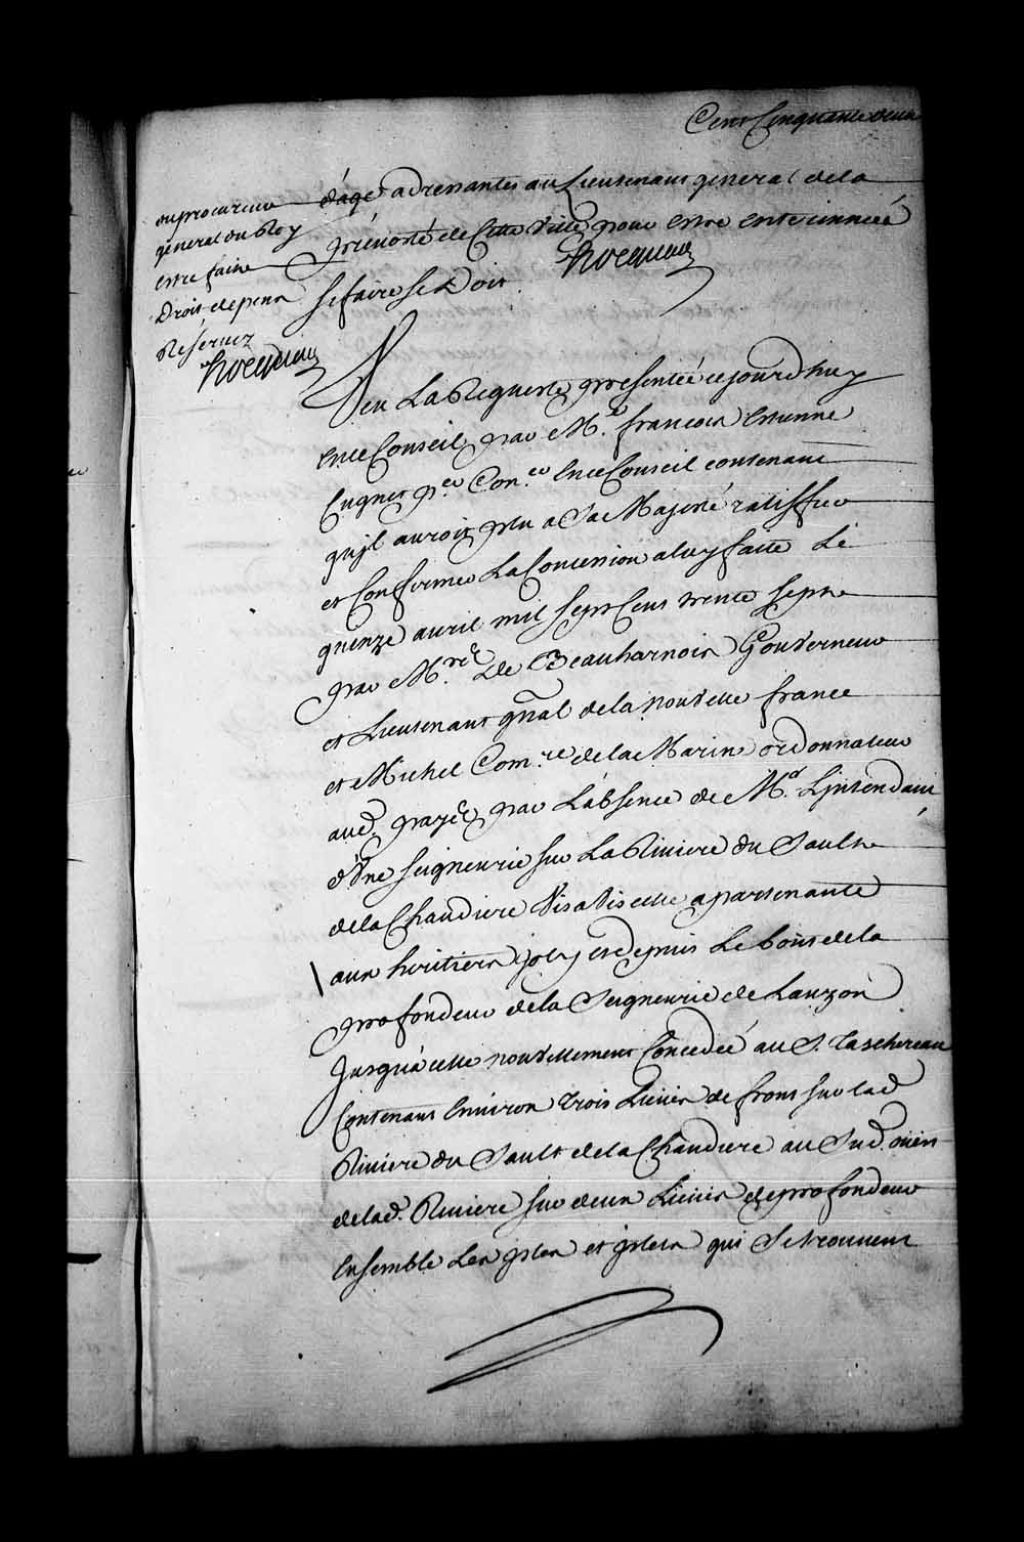 Cent Cinquante deux
d'age adressantes au Lieutenant general de la
prévosté de Cette Ville pour estre enterinnées
si faire se Doit
hocquart
au procureur
général du Roy
estre faire
Droit depens
Réservez
hocquart
Veu La Requeste presentée cejourd'huy
en ce Conseil par Me. francois Estienne
Cugnet per. Coner. en ce Conseil contenant
qu'jl auroit plu a Sa Majesté ratiffier
et Confirmer La Concession a luy faite Le
quinze avril mil sept Cens trente sept
par Mrs. de Beauharnois Gouverneur
et Lieutenant gnal de la nouvelle france
et Michel Comre. de la Marine ordonnateur
aud. payé par L'absence de Mr. L'jntendant
d'Vne seigneurie sur La Riviere du Sault
de la Chaudiere Vis a Vis celle apartenante
aux heritiers joly et depuis Le bout de la
profondeur de la Seigneurie de Lauzon
Jusqu'à celle nouvellement Concedée au S. Taschereau
Contenant Environ trois Lieües de front sur lad
Riviere du Sault de la Chaudiere au Sud ouest
de lad. Riviere sur deux Lieües de profondeur
Ensemble Les jsles et jslets qui Se trouvent